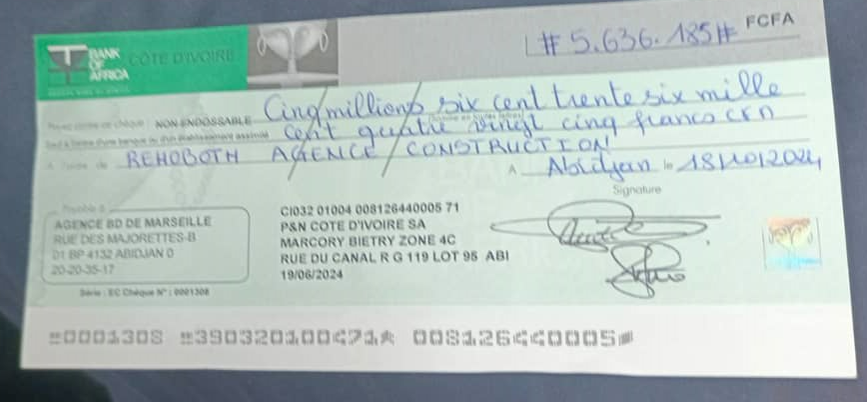 BANK OF AFRICA CÔTE D'IVOIRE
# 5.636.185 # FCFA
NON ENDOSSABLE Cinq millions six cent trente six mille
cent quatre vingt cinq francs CFA
REHOBOTH AGENCE CONSTRUCTION
A Abidjan le 18/10/2024
Signature
Payable à
AGENCE BD DE MARSEILLE
RUE DES MAJORETTES-B
01 BP 4132 ABIDJAN 0
20-20-35-17
Série : EC Chèque N° : 0001308
CI032 01004 008126440005 71
P&N COTE D'IVOIRE SA
MARCORY BIETRY ZONE 4C
RUE DU CANAL R G 119 LOT 95 ABI
19/06/2024
0001308 390320100471 008126440005